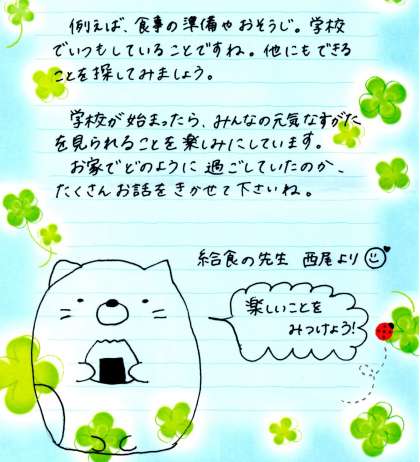 例えば、食事の準備やおそうじ。学校
でいつもしていることですね。他にもできる
ことを探してみましょう。
学校が始まったら、みんなの元気なすがた
を見られることを楽しみにしています。
お家でどのように過ごしていたのか、
たくさんお話をきかせて下さいね。
給食の先生 西尾より
楽しいことを
みつけよう!